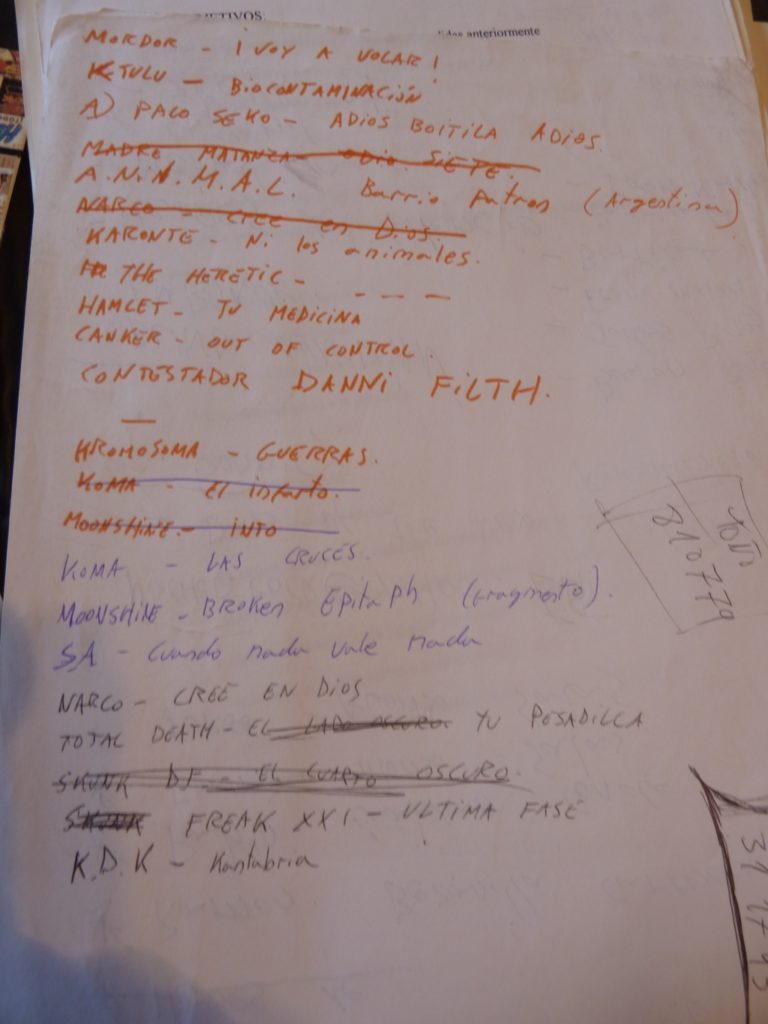 JETIVOS:
anteriormente
MORDOR - ¡VOY A VOLAR!
KTULU - BIOCONTAMINACIÓN
A) PALO SEKO - ADIOS BOITILA ADIOS.
MADRE MATANZA - ODIO SIETE.
A.N.I.M.A.L. Barrio Patron (Argentina)
NARCO - CREE en Dios.
KARONTE - Ni los animales.
THE HERETIC - - - -
HAMLET - TU MEDICINA
CANKER - OUT OF CONTROL.
CONTESTADOR DANNI FILTH.
—
KROMOSOMA - GUERRAS.
KOMA - El infarto.
MOONSHINE - INTO
KOMA - LAS CRUCES.
MOONSHINE - BROKEN Epitaph (Fragmento).
SA - Cuando nada vale nada
NARCO - CREE EN DIOS
TOTAL DEATH - EL LADO OSCURO. TU PESADILLA
SKUNK DF - EL CUARTO OSCURO.
SKUNK FREAK XXI - ULTIMA FASE
K.D.K - Kantabria
TOÑO
810779